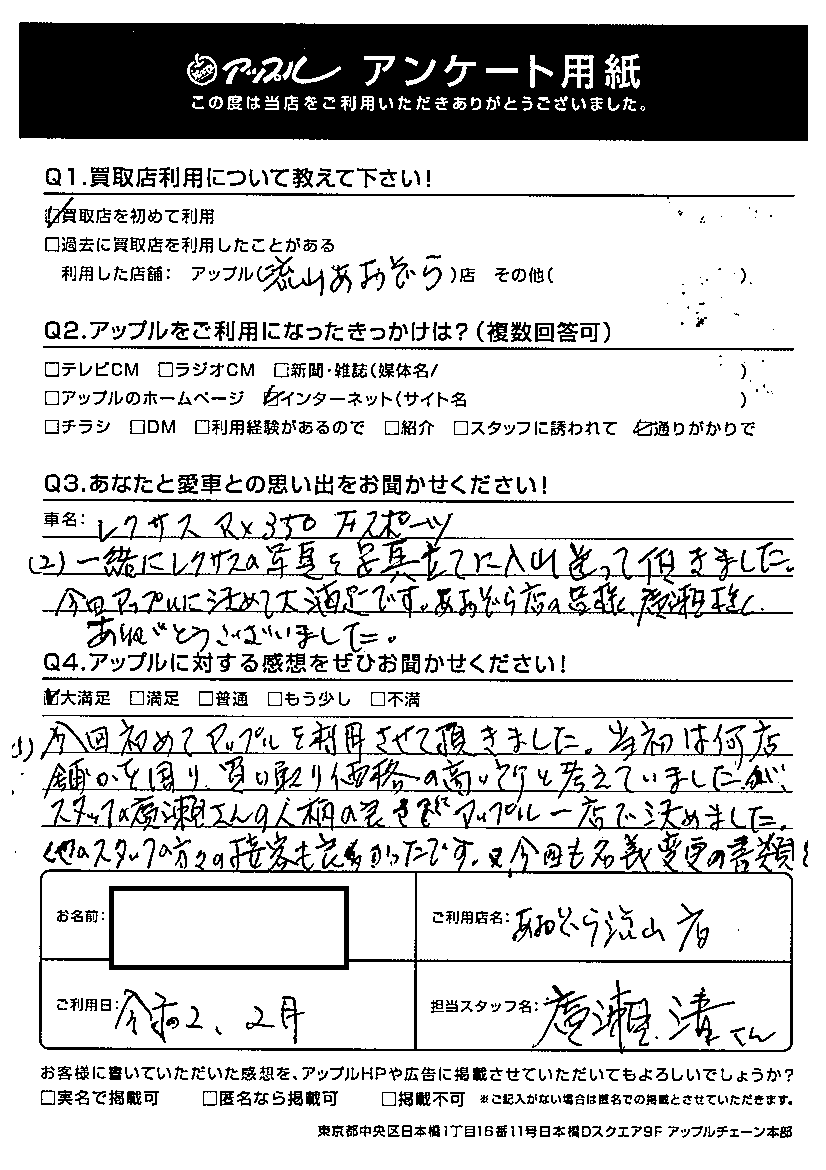 アップル アンケート用紙
この度は当店をご利用いただきありがとうございました。
Q1.買取店利用について教えて下さい!
☑買取店を初めて利用
□過去に買取店を利用したことがある
利用した店舗: アップル(流山あおぞら)店 その他( )
Q2.アップルをご利用になったきっかけは?(複数回答可)
□テレビCM □ラジオCM □新聞・雑誌(媒体名/ )
□アップルのホームページ ☑インターネット(サイト名 )
□チラシ □DM □利用経験があるので □紹介 □スタッフに誘われて ☑通りがかりで
Q3.あなたと愛車との思い出をお聞かせください!
車名: レクサス RX350 Fスポーツ
(2) 一緒にレクサスの写真を写真立てに入れ送って頂きました。
今回アップルに決めて大満足です。あおぞら店の皆様、廣瀬様、
ありがとうございました。
Q4.アップルに対する感想をぜひお聞かせください!
☑大満足 □満足 □普通 □もう少し □不満
(1) 今回初めてアップルを利用させて頂きました。当初は何店
舗かを周り、買い取り価格の高い所と考えていましたが、
スタッフの廣瀬さんの人柄の良さにアップル一店で決めました。
他のスタッフの方々の接客も良かったです。又、今回も名義変更の書類と
お名前:
ご利用店名: あおぞら流山店
ご利用日: 令和2、2月
担当スタッフ名: 廣瀬 清さん
お客様に書いていただいた感想を、アップルHPや広告に掲載させていただいてもよろしいでしょうか?
□実名で掲載可 □匿名なら掲載可 □掲載不可 ※ご記入がない場合は匿名での掲載とさせていただきます。
東京都中央区日本橋1丁目16番11号日本橋Dスクエア9F アップルチェーン本部